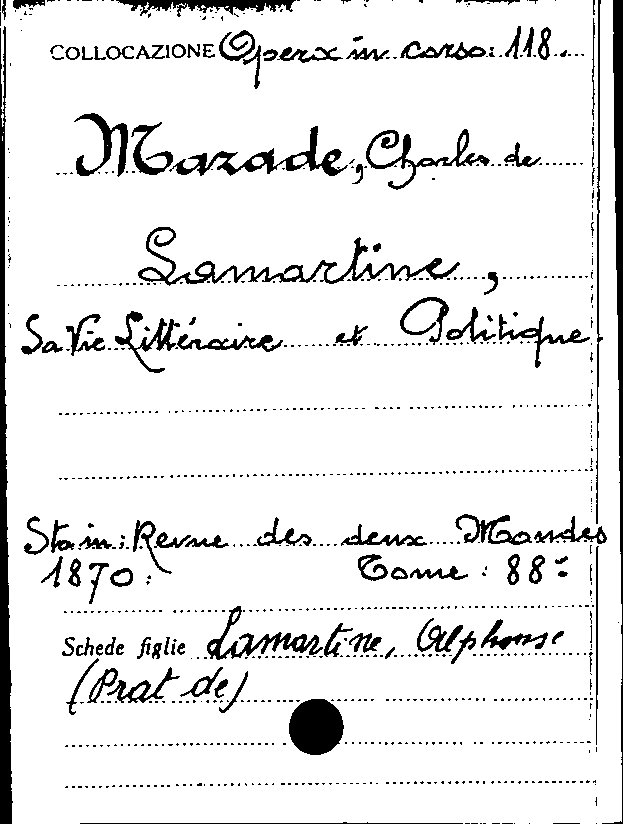 COLLOCAZIONE Opera in corso: 118.
Mazade, Charles de
Lamartine,
Sa Vie Littéraire et Politique.
Sta in: Revue des deux Mondes
1870: Tome: 88:
Schede figlie Lamartine, Alphonse
(Prat de)